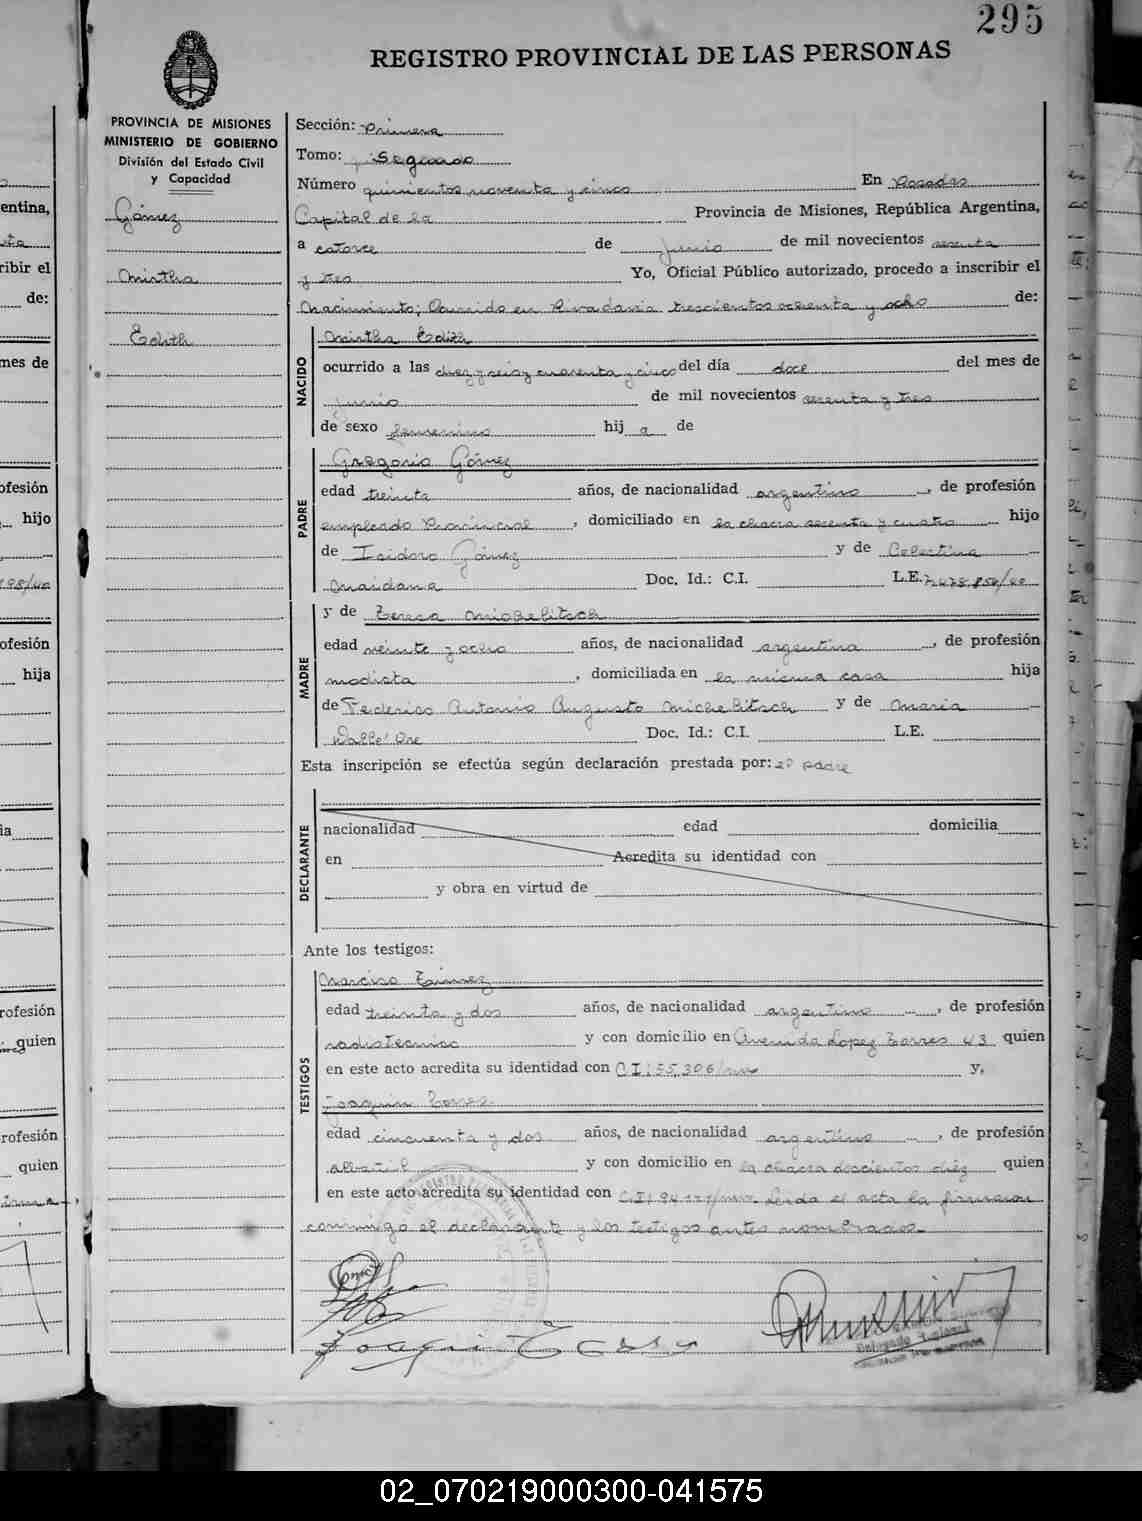 295
REGISTRO PROVINCIAL DE LAS PERSONAS
PROVINCIA DE MISIONES
MINISTERIO DE GOBIERNO
División del Estado Civil
y Capacidad
Gómez
Mirtha
Edith
Sección: Primera
Tomo: Segundo
Número quinientos noventa y cinco En Posadas
Capital de la Provincia de Misiones, República Argentina,
a catorce de junio de mil novecientos sesenta
y tres Yo, Oficial Público autorizado, procedo a inscribir el
Nacimiento; Ocurrido en Rivadavia trescientos ochenta y ocho de:
NACIDO
Mirtha Edith
ocurrido a las diez y seis y cuarenta y cinco del día doce del mes de
junio de mil novecientos sesenta y tres
de sexo femenino hij a de
PADRE
Gregorio Gómez
edad treinta años, de nacionalidad argentino, de profesión
empleado Provincial, domiciliado en la chacra sesenta y cuatro hijo
de Isidoro Gómez y de Celestina
Maidana Doc. Id.: C.I. L.E.
MADRE
y de Teresa Michelitsch
edad veinte y ocho años, de nacionalidad argentina, de profesión
modista, domiciliada en la misma casa hija
de Federico Antonio Augusto Michelitsch y de Maria
Doc. Id.: C.I. L.E.
Esta inscripción se efectúa según declaración prestada por: el padre
DECLARANTE
nacionalidad edad domicilia
en Acredita su identidad con
y obra en virtud de
Ante los testigos:
TESTIGOS
Narciso
edad treinta y dos años, de nacionalidad argentino, de profesión
radiotecnico y con domicilio en Avenida Lopez Torres 43 quien
en este acto acredita su identidad con C I: 55.306 y,
Joaquin Torres
edad cincuenta y dos años, de nacionalidad argentino, de profesión
albañil y con domicilio en la chacra doscientos diez quien
en este acto acredita su identidad con C.I: Leida el acta la firmaron
conmigo el declarante y los testigos antes nombrados.
Joaquin Torres
02_070219000300-041575